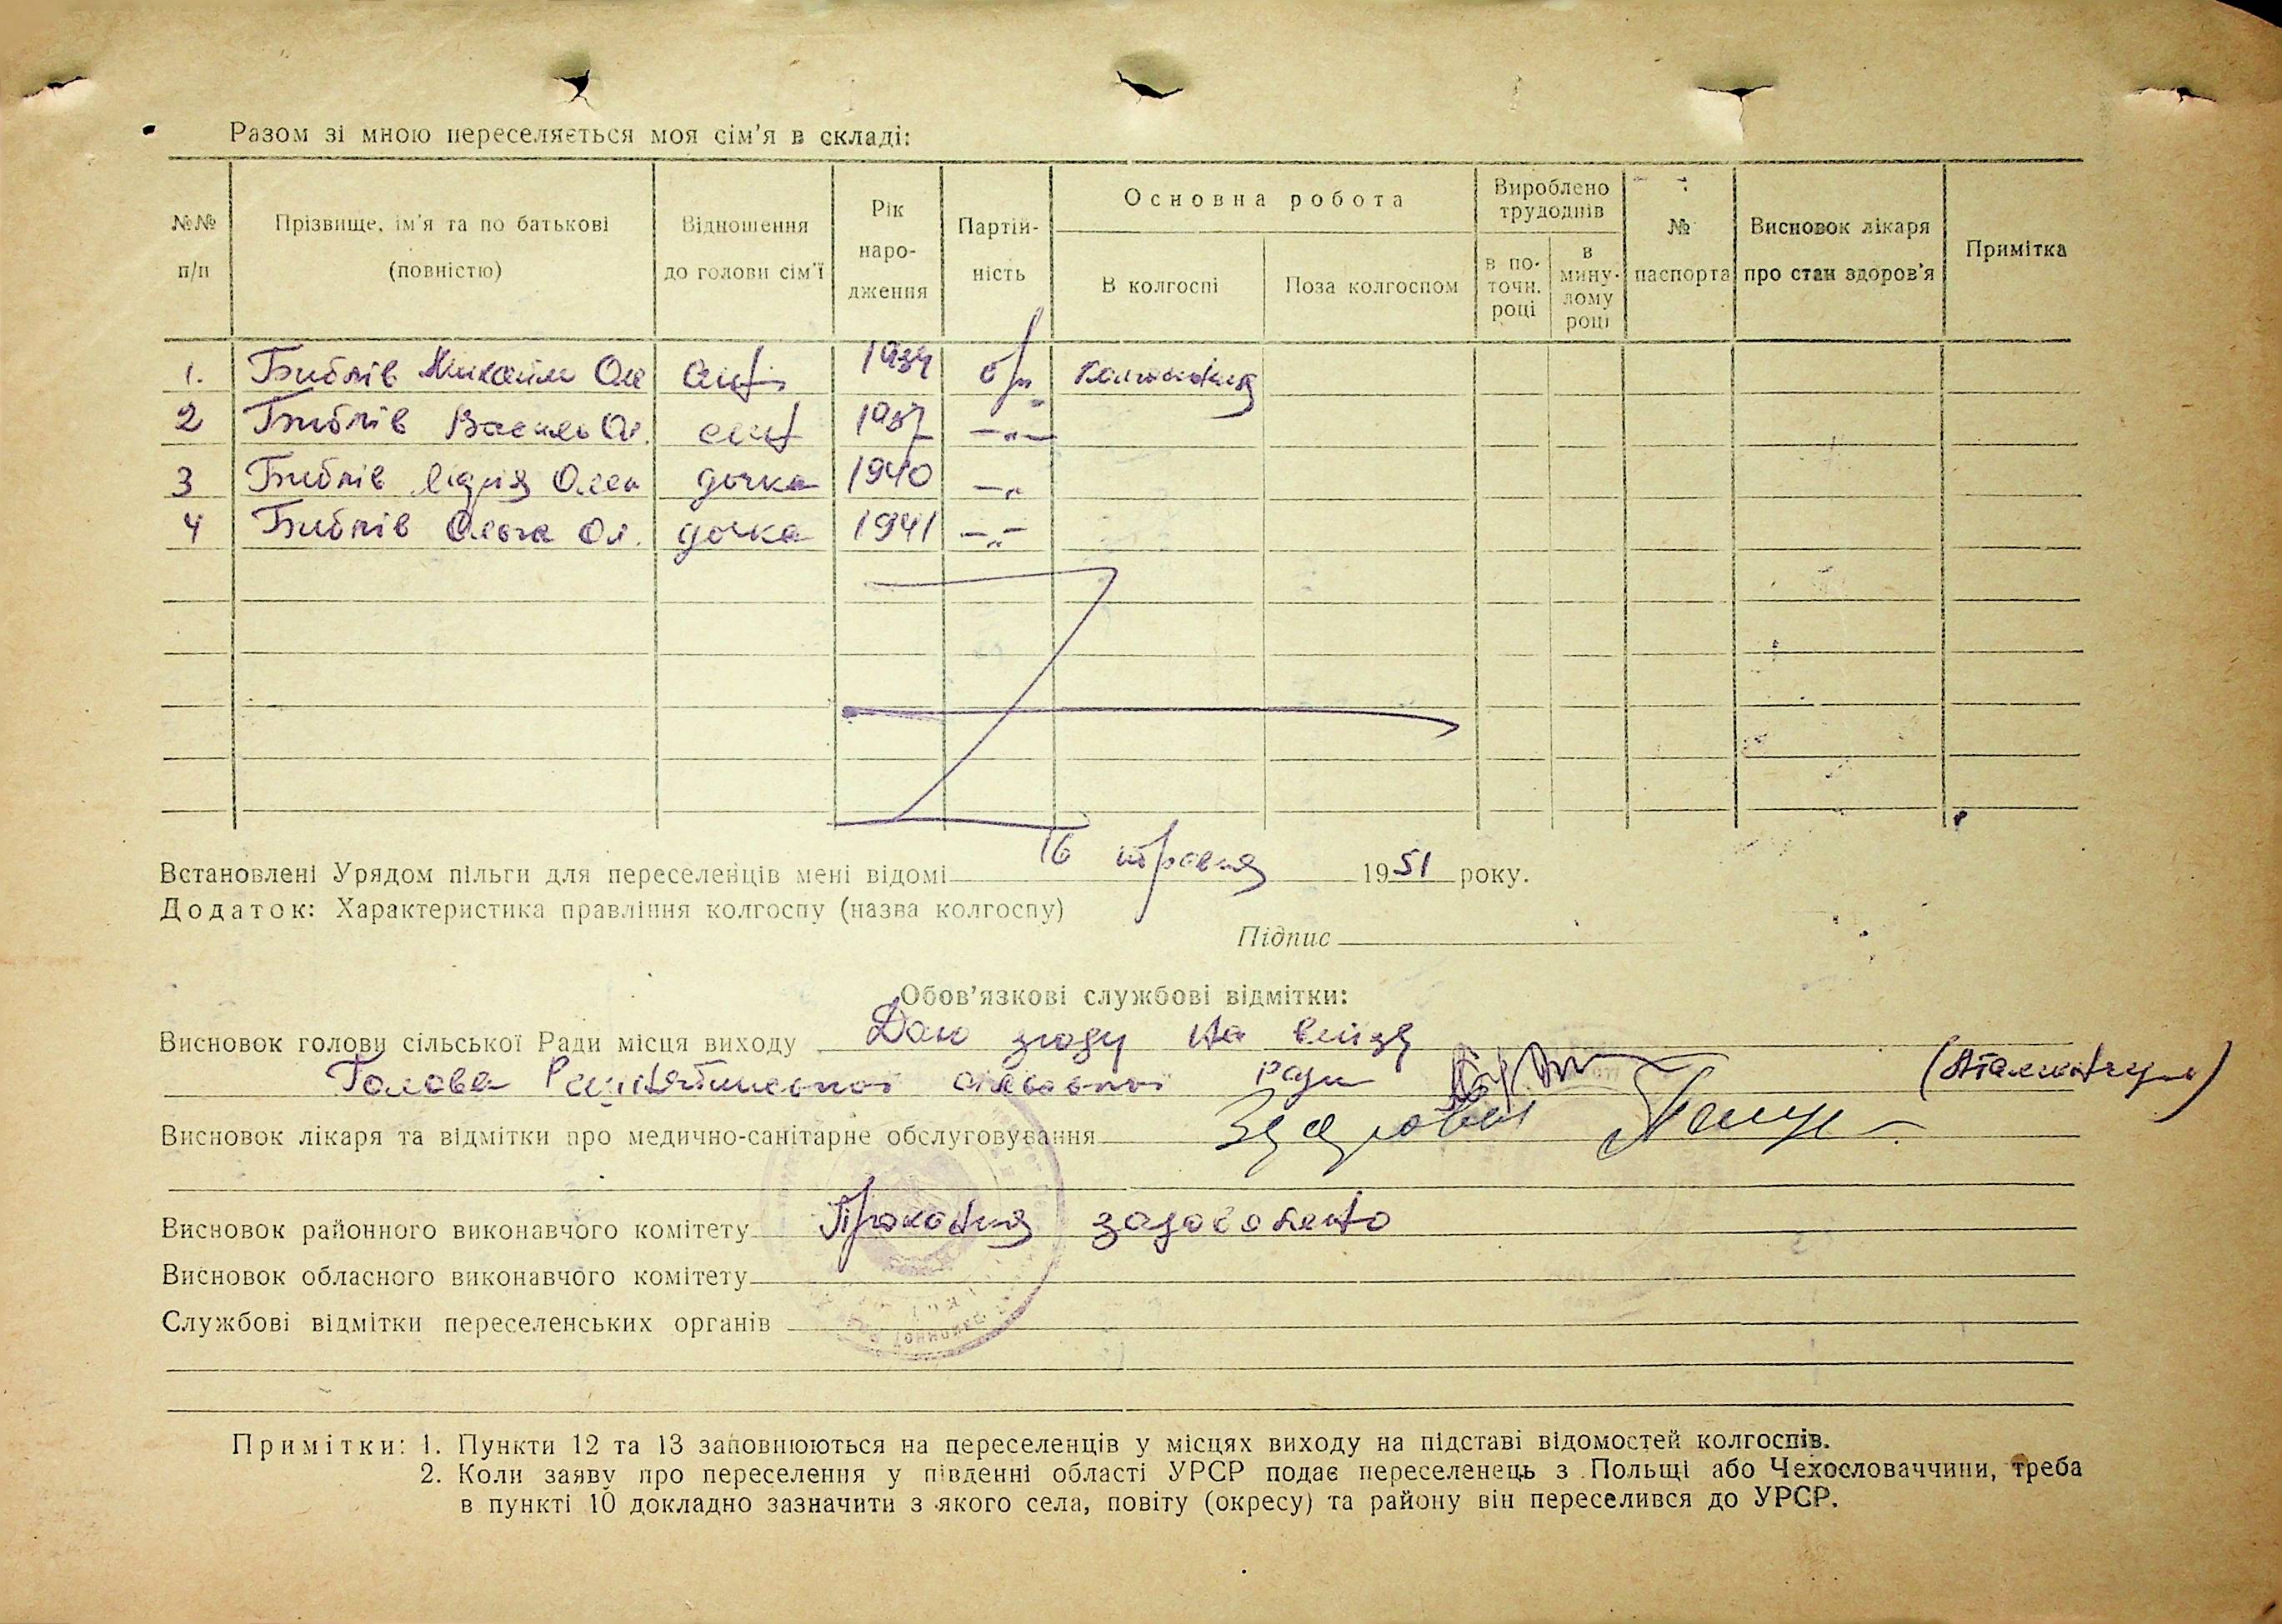 Разом зі мною переселяється моя сім'я в складі:
№№ п/п
Прізвище, ім'я та по батькові (повністю)
Відношення до голови сім'ї
Рік народження
Партійність
Основна робота
В колгоспі
Поза колгоспом
Вироблено трудоднів
в поточн. році
в минулому році
№ паспорта
Висновок лікаря про стан здоров'я
Примітка
1. Библів Михайло Ол син 1934 б/п
2 Библів Василь Ол. син 1937 —„—
3 Библів Лідія Олек дочка 1940 —„
4 Библів Ольга Ол. дочка 1941 —„—
Встановлені Урядом пільги для переселенців мені відомі 16 травня 1951 року.
Додаток: Характеристика правління колгоспу (назва колгоспу)
Підпис
Обов'язкові службові відмітки:
Висновок голови сільської Ради місця виходу Даю згоду на виїзд
Голова сільської ради
Висновок лікаря та відмітки про медично-санітарне обслуговування Здорові
Висновок районного виконавчого комітету Прохання задоволено
Висновок обласного виконавчого комітету
Службові відмітки переселенських органів
Примітки: 1. Пункти 12 та 13 заповнюються на переселенців у місцях виходу на підставі відомостей колгоспів.
2. Коли заяву про переселення у південні області УРСР подає переселенець з Польщі або Чехословаччини, треба
в пункті 10 докладно зазначити з якого села, повіту (окресу) та району він переселився до УРСР.